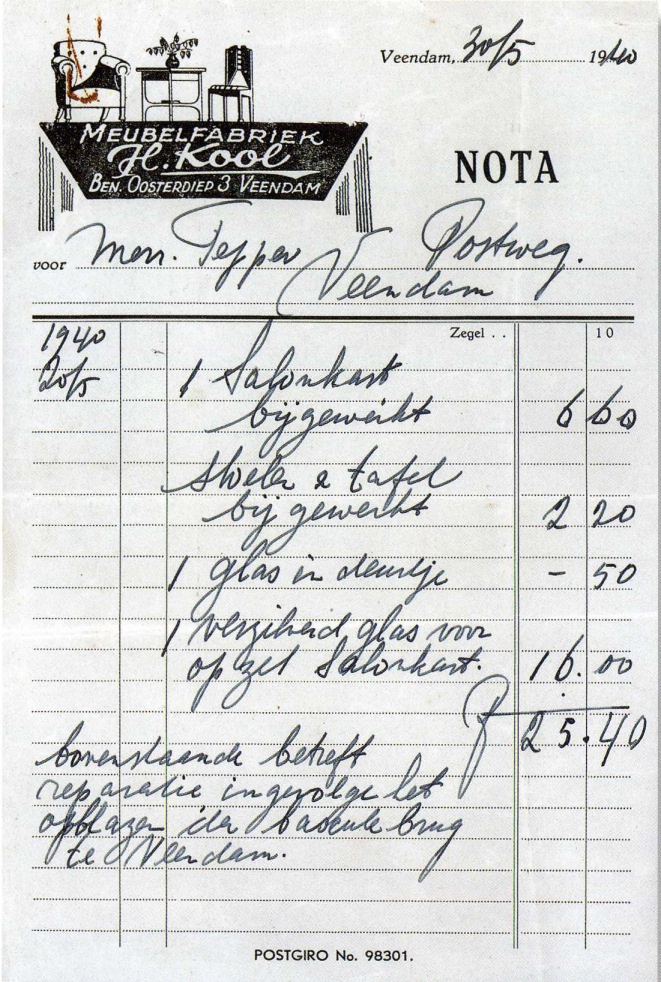 Veendam, 30/5 1940
MEUBELFABRIEK
H. Kool
BEN. OOSTERDIEP 3 VEENDAM
NOTA
voor Mevr. Tepper Postweg.
Veendam
1940 Zegel . . 10
20/5 1 Salonkast
bijgewerkt 6 60
stoelen & tafel
bijgewerkt 2 20
1 glas in deurtje - 50
1 verzilverd glas voor
opzet Salonkast. 16.00
f 25.40
bovenstaande betreft
reparatie ingevolge het
opblazen der bascule brug
te Veendam.
POSTGIRO No. 98301.